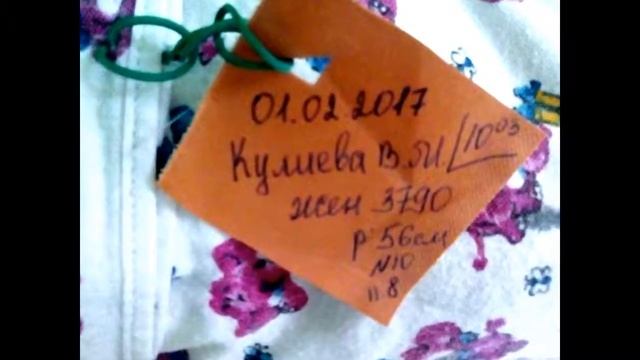 01.02.2017
Кулиева В.Я. 10⁰³
жен 3790
р 56см
N10
п.8